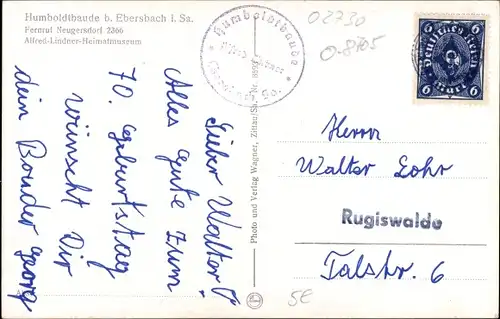 Humboldtbaude b. Ebersbach i. Sa.
Fernruf Neugersdorf 2366
Alfred-Lindner-Heimatmuseum
Lieber Walter!
Alles gute zum
70. Geburtstag
wünscht Dir
dein Bruder Georg
Humboldtbaude
Ebersbach Sa.
Photo und Verlag Wagner, Zittau/Sa.
02730
O-8705
6 6
Deutsches Reich
6 Mark 6
Herrn
Walter Lohr
Rugiswalde
Talstr. 6
SE